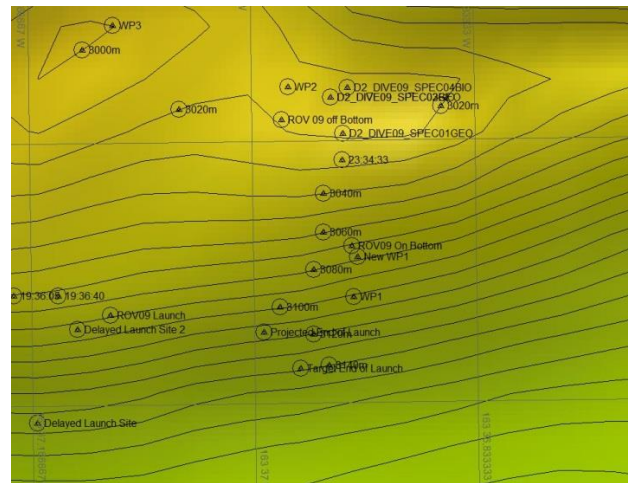 WP3
3000m
WP2
D2_DIVE09_SPEC04BIO
3020m
3020m
ROV 09 off Bottom
D2_DIVE09_SPEC01GEO
23:34:33
3040m
3060m
ROV09 On Bottom
New WP1
3080m
19:36:40
WP1
3100m
ROV09 Launch
Delayed Launch Site 2
Projected End of Launch
3140m
Target End of Launch
Delayed Launch Site
163.37